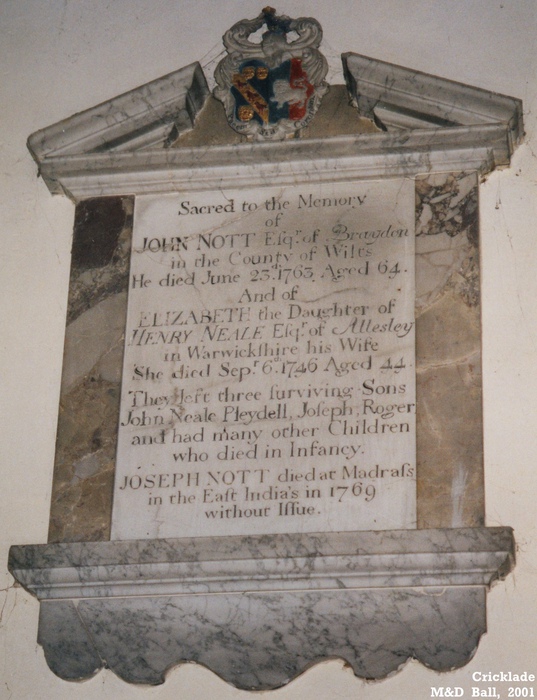 Sacred to the Memory
of
JOHN NOTT Esqr. of Braydon
in the County of Wilts
He died June 23d. 1763 Aged 64.
And of
ELIZABETH the Daughter of
HENRY NEALE Esqr. of Allesley
in Warwickſhire his Wife
She died Sepr. 6th. 1746 Aged 44
They left three ſurviving Sons
John Neale Pleydell, Joseph, Roger
and had many other Children
who died in Infancy.
JOSEPH NOTT died at Madraſs
in the Eaſt India's in 1769
without Iſſue.
Cricklade
M&D Ball, 2001